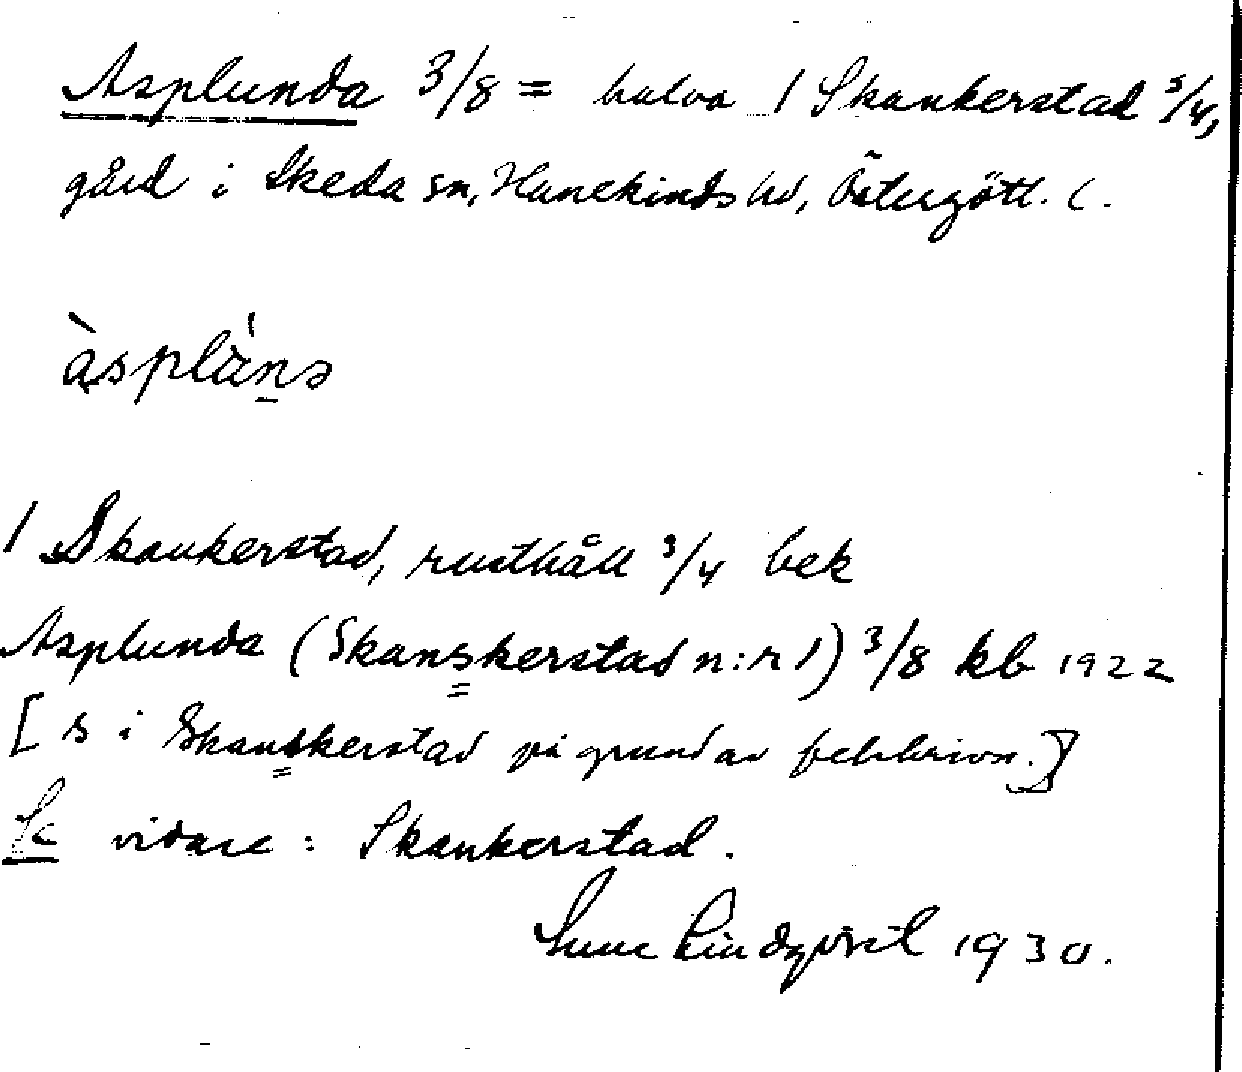 Asplunda 3/8 = halva 1 Skankerstad 3/4,
gård i Skeda sn, Hanekinds hd, Östergötl. l.
àsplán̲ə
1 Skankerstad, rusthåll 3/4 bek
Asplunda (Skanskerstad n:r 1) 3/8 kb 1922
[s i Skanskerstad på grund av felskrivn.]
Se vidare: Skankerstad.
Sune Lindqvist 1930.